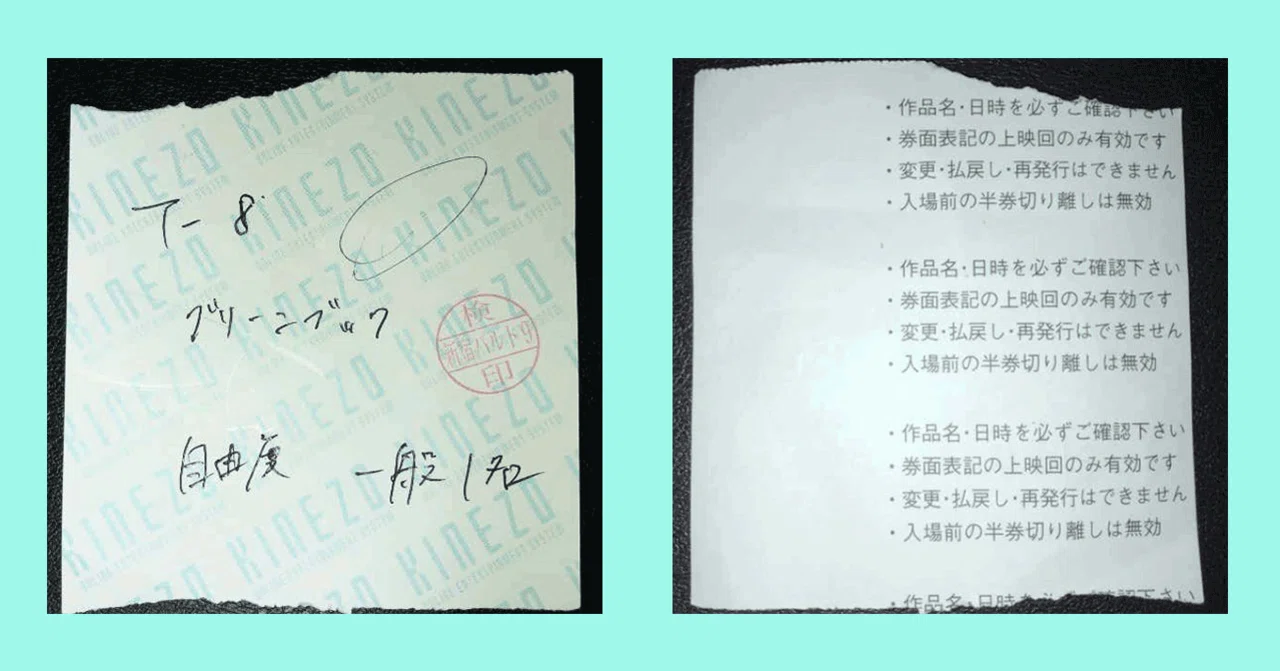 KINEZO
ONLINE ENTERTAINMENT SYSTEM
T- 8
グリーンブック
検
新宿バルト9
印
自由度 一般1名
・作品名・日時を必ずご確認下さい
・券面表記の上映回のみ有効です
・変更・払戻し・再発行はできません
・入場前の半券切り離しは無効
・作品名・日時を必ずご確認下さい
・券面表記の上映回のみ有効です
・変更・払戻し・再発行はできません
・入場前の半券切り離しは無効
・作品名・日時を必ずご確認下さい
・券面表記の上映回のみ有効です
・変更・払戻し・再発行はできません
・入場前の半券切り離しは無効
・作品名・日時を必ずご確認下さい